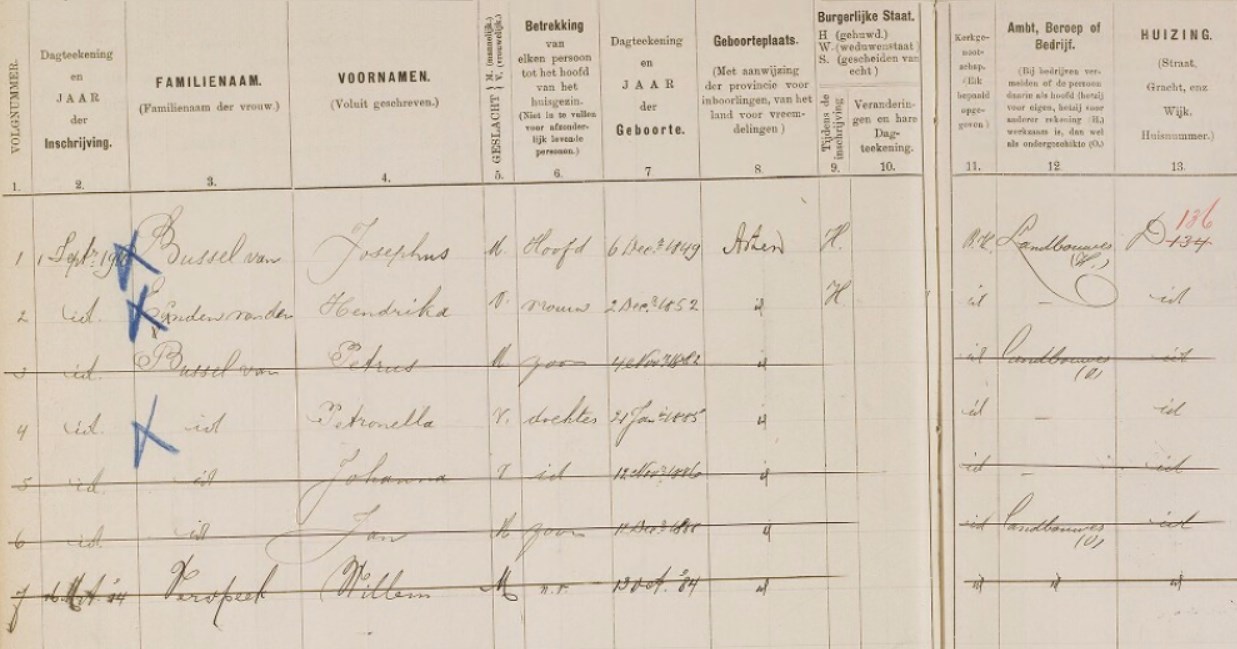 VOLGNUMMER.
1.
Dagteekening
en
JAAR
der
Inschrijving.
2.
FAMILIENAAM.
(Familienaam der vrouw.)
3.
VOORNAMEN.
(Voluit geschreven.)
4.
GESLACHT
M. (mannelijk.)
V. (vrouwelijk.)
5.
Betrekking
van
elken persoon
tot het hoofd
van het
huisgezin.
(Niet in te vullen
voor afzonder-
lijk levende
personen.)
6.
Dagteekening
en
JAAR
der
Geboorte.
7
Geboorteplaats.
(Met aanwijzing
der provincie voor
inboorlingen, van het
land voor vreem-
delingen)
8.
Burgerlijke Staat.
H (gehuwd.)
W. (weduwenstaat)
S. (gescheiden van
echt)
Tijdens de
inschrijving
9.
Veranderin-
gen en hare
Dag-
teekening.
10.
Kerkge-
noot-
schap.
(Elk
bepaald
opge-
geven)
11.
Ambt, Beroep of
Bedrijf.
(Bij bedrijven ver-
melden of de persoon
daarin als hoofd (hetzij
voor eigen, hetzij voor
anderer rekening (H.)
werkzaam is, dan wel
als ondergeschikte (O.)
12
HUIZING.
(Straat,
Gracht, enz
Wijk.
Huisnummer.)
13.
1 1 Sept. Bussel van Josephus M. Hoofd 6 Dec. 1849 H. Landbouwer (H.) D 134 136
2 id. van den Hendrika V. vrouw 2 Dec. 1852 id H id — id
3 id. Bussel van Petrus M zoon Nov. 1882 id id Landbouwer (O) id
4 id id Petronella V. dochter 21 Jan. 1885 id id — id
5 id id Johanna V id 12 Nov. 1886 id id — id
6 id id Jan M zoon Dec. id id Landbouwer (O) id
7 Willem M Oct. '84 id id id id